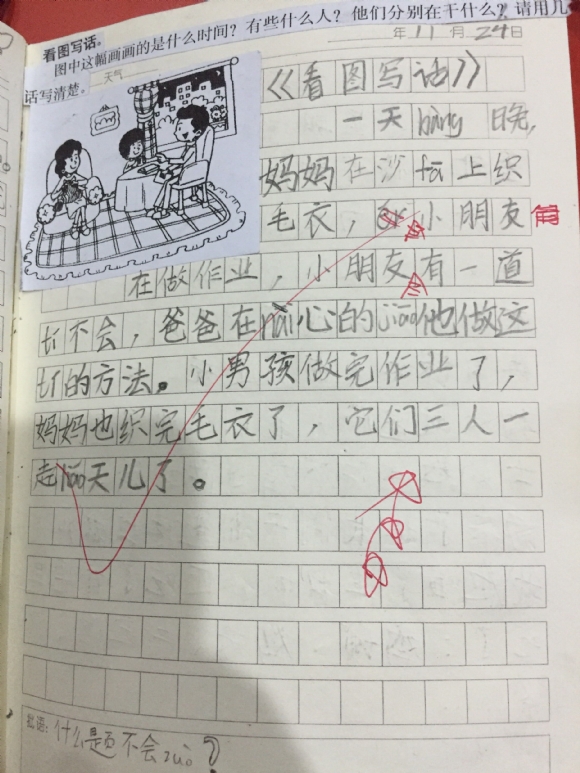 看图写话。
图中这幅画画的是什么时间？有些什么人？他们分别在干什么？请用几
话写清楚。
天气
年 11 月 24 日
《看图写话》
一天 bàng 晚，
妈妈在沙 fā 上织
毛衣，小朋友
在做作业，小朋友有一道
tí 不会，爸爸在 nài 心的 jiāo 他做这
tí 的方法。小男孩做完作业了，
妈妈也织完毛衣了，它们三人一
起 liáo 天儿了。
批语：什么是题不会 zuò？